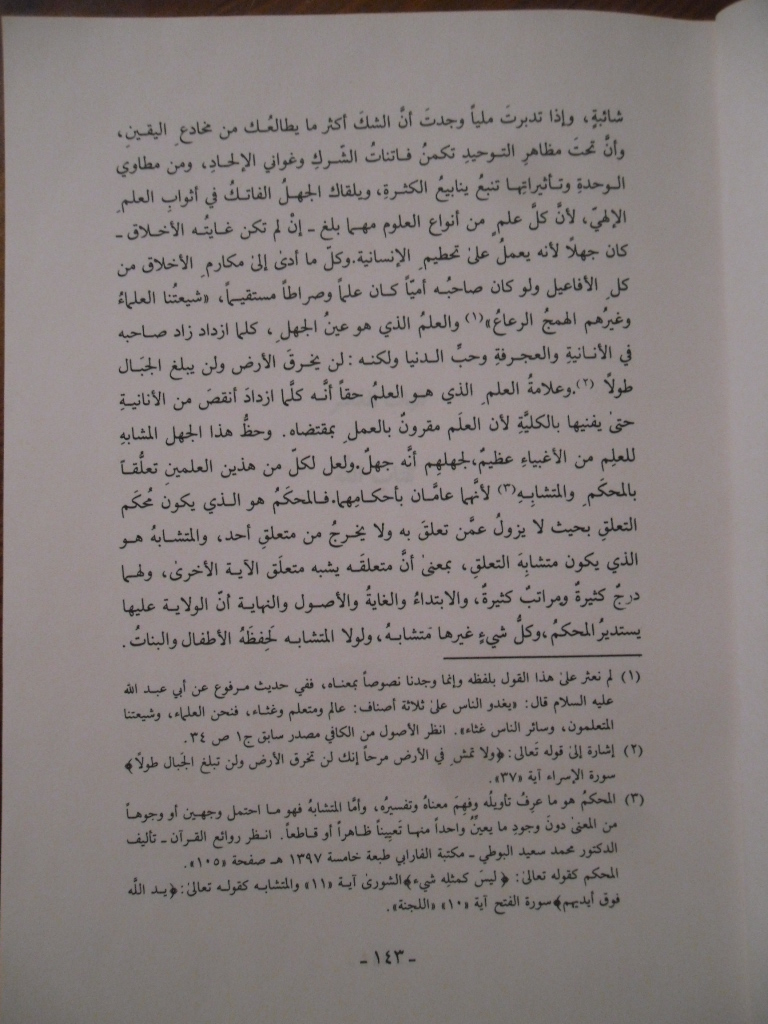 شائبةٍ، وإذا تدبرتَ ملياً وجدتَ أنَّ الشكَ أكثر ما يطالعُـك من مخادعِ اليقينِ،
وأنَّ تحتَ مظاهرِ التوحيدِ تكمنُ فـاتناتُ الشّركِ وغواني الإلحادِ، ومن مطاوي
الوحدةِ وتأثيراتِها تنبعُ ينابيعُ الكثرةِ، ويلقاك الجهلُ الفاتكُ في أثوابِ العلمِ
الإلهيّ، لأنَّ كلَّ علمٍ من أنواع العلوم مهما بلغ ـ إنْ لم تكن غـايتُـه الأخـلاق ـ
كان جهلًا لأنه يعملُ على تحطيمِ الإنسانية.وكلّ ما أدى إلى مكارمِ الأخلاق من
كلِ الأفاعيل ولو كان صاحبُه أميّاً كـان علماً وصراطاً مستقيـماً، «شيعتُنا العلماءُ
وغيرُهم الهمجُ الرعاعُ»(١) والعلمُ الذي هو عينُ الجهلِ، كلما ازداد زاد صـاحبه
في الأنـانيةِ والعجـرفةِ وحبِّ الـدنيا ولكنـه : لن يخـرقَ الأرض ولن يبلغ الجبَـال
طولًا (٢).وعلامةُ العلمِ الذي هـو العلمُ حقاً أنَّـه كلَّما ازدادَ أنقصَ من الأنانيـةِ
حتىٰ يفنيها بالكليَّةِ لأن العلَم مقرونٌ بالعملِ بمقتضاه. وحظُّ هذا الجهل المشابهِ
للعلِم من الأغبياءِ عظيمٌ،لجهلهِم أنَّه جهلٌ.ولعل لكلّ من هذين العلمينِ تعلُّقـاً
بالمحكَمِ والمتشابِـهِ(٣) لأنَّهما عامَّـان بأحكـامِهما.فـالمحكَمُ هو الـذي يكون مُحكَم
التعلقِ بحيث لا يزولُ عمَّن تعلقَ به ولا يخـرجُ من متعلقِ أحد، والمتشـابهُ هـو
الذي يكون متشابِهَ التعلقِ، بمعنىٰ أنَّ متعلقَـه يشبه متعلَق الآيـة الأخرىٰ، ولهـما
درجٌ كثيرةٌ ومراتبٌ كثيرةٌ، والابتداءُ والغايةُ والأصـول والنهايـة أنّ الولايـة عليها
يستديرُ المحكمُ،وكلُّ شيءٍ غيرها متشابـهُ، ولولا المتشابـه لَحِفظَهُ الأطفال والبناتُ.
(١) لم نعثر على هذا القول بلفظه وإنما وجدنا نصوصاً بمعنـاه، ففي حديث مـرفوع عن أبي عبـد الله
عليه السلام قال: «يغدو الناس علىٰ ثلاثة أصناف: عالم ومتعلم وغثـاء، فنحن العلماء، وشيعتنا
المتعلمون، وسائر الناس غثاء». انظر الأصول من الكافي مصدر سابق ج١ ص ٣٤.
(٢) إشارة إلىٰ قوله تَعالى: ﴿ولا تمشِ في الأرض مرحاً إنك لن تخرق الأرض ولن تبلغ الجَبال طولًا﴾
سورة الإسراء آية «٣٧».
(٣) المحكمُ هو ما عرِفُ تأويلُه وفهِمَ معناهُ وتفسيرُه، وأمَّا المتشابهُ فهو مـا احتمل وجهـين أو وجوهـاً
من المعنىٰ دونَ وجودِ ما يعيّنُ واحداً منهـا تَعييناً ظـاهراً أو قـاطعاً. انـظر روائع القرآن ـ تأليف
الدكتور محمد سعيد البوطي ـ مكتبة الفارابي طبعة خامسة ١٣٩٧ هـ صفحة «١٠٥».
المحكم كقوله تعالىٰ: ﴿ليسَ كمثلِه شيء﴾الشورىٰ آيـة «١١» والمتشابـه كقولـه تعالىٰ: ﴿يـد اللَّه
فوق أيديهم﴾سورة الفتح آية «١٠» «اللجنة».
ـ ١٤٣ ـ